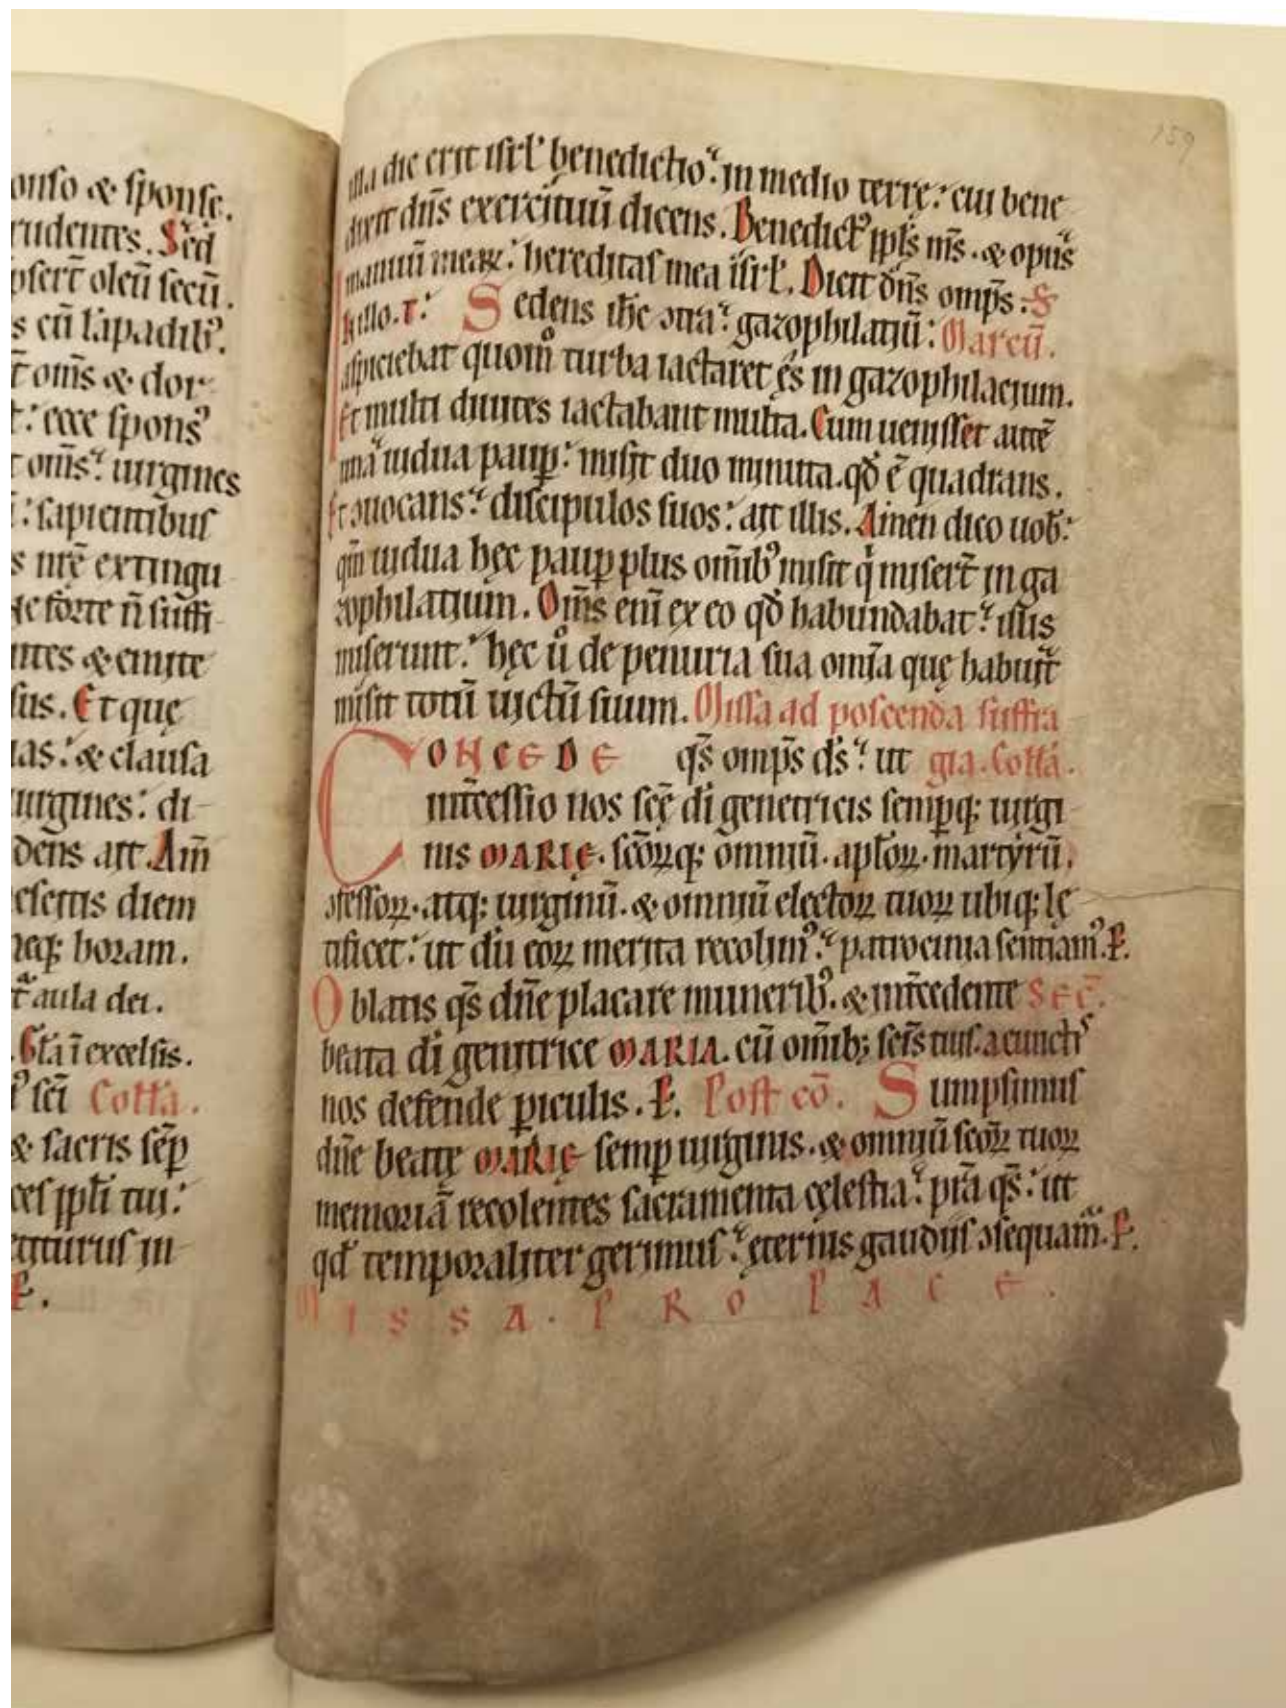 onso & sponse.
rudentes. Sed
pserť oleū secū.
s cū lāpadibꝰ.
ť om̄s & dor-
t: ecce sponsꝰ
t om̄s: uirgines
: sapientibus
s nrē extingu
ne forte n̄ suffi-
ntes & emite
sus. Et quę
as: & clausa
uirgines: di-
dens ait Am̄
escitis diem
neqꝫ horam.
aula dei.
Gła ī excelsis.
sc̄i Cołła.
& sacris sēp
ces ppłi tui:
in-
P̵.
159
illa die erit isrł benedictio: in medio terrę: cui bene-
dixit dn̄s exercituū dicens. Benedictꝰ ppłs m̄s. & opus
manuū mearꝝ: hereditas mea isrł. Dicit dn̄s omp̄s. S
illo. T: Sedens ih̄c ↄtra: gazophilatiū: Marcū.
aspiciebat quom̊ turba iactaret ęs in gazophilacium.
Et multi diuites iactabant multa. Cum uenisset autē
unā uidua paup̲: misit duo minuta. qđ ē quadrans.
Et ↄuocans: discipulos suos: ait illis. Amen dico uob̄:
qm̄ uidua hęc paup̲ plus om̄ibꝰ misit q̇ miserť in ga
zophilatium. Om̄s enī ex eo qđ habundabat: illis
miserunt: hęc ů de penuria sua om̄ia quę habuit
misit totū uictū suum. Missa ad poscenda suffra
CONCEDE qs̄ omp̄s ds̄: ut gia. Cołła.
int̄cessio nos scę̄ dī genetricis semp̲qꝫ uirgi-
nis MARIĘ. sc̄orꝝqꝫ omniū. apłorꝝ. martyrū.
ↄfessorꝝ. atqꝫ uirginū. & omniū electorꝝ tuorꝝ ubiqꝫ lę
tificet: ut dū eorꝝ merita recolimꝰ: patrocinia sentiamꝰ. P̵.
Oblatis qs̄ dn̄e placare muneribꝰ. & int̄cedente SEC̄.
beata dī genitrice MARIA. cū om̄ibꝫ sc̄is tuis. a cunctis
nos defende p̲iculis. P̵. Post cō. Sumpsimus
dn̄e beatę MARIĘ semp̲ uirginis. & omniū sc̄orꝝ tuorꝝ
memoriā recolentes sacramenta cęlestia: prā qs̄: ut
qđ temporaliter gerimus: ęternis gaudiis ↄsequam̄. P̵.
MISSA. PRO PACE.